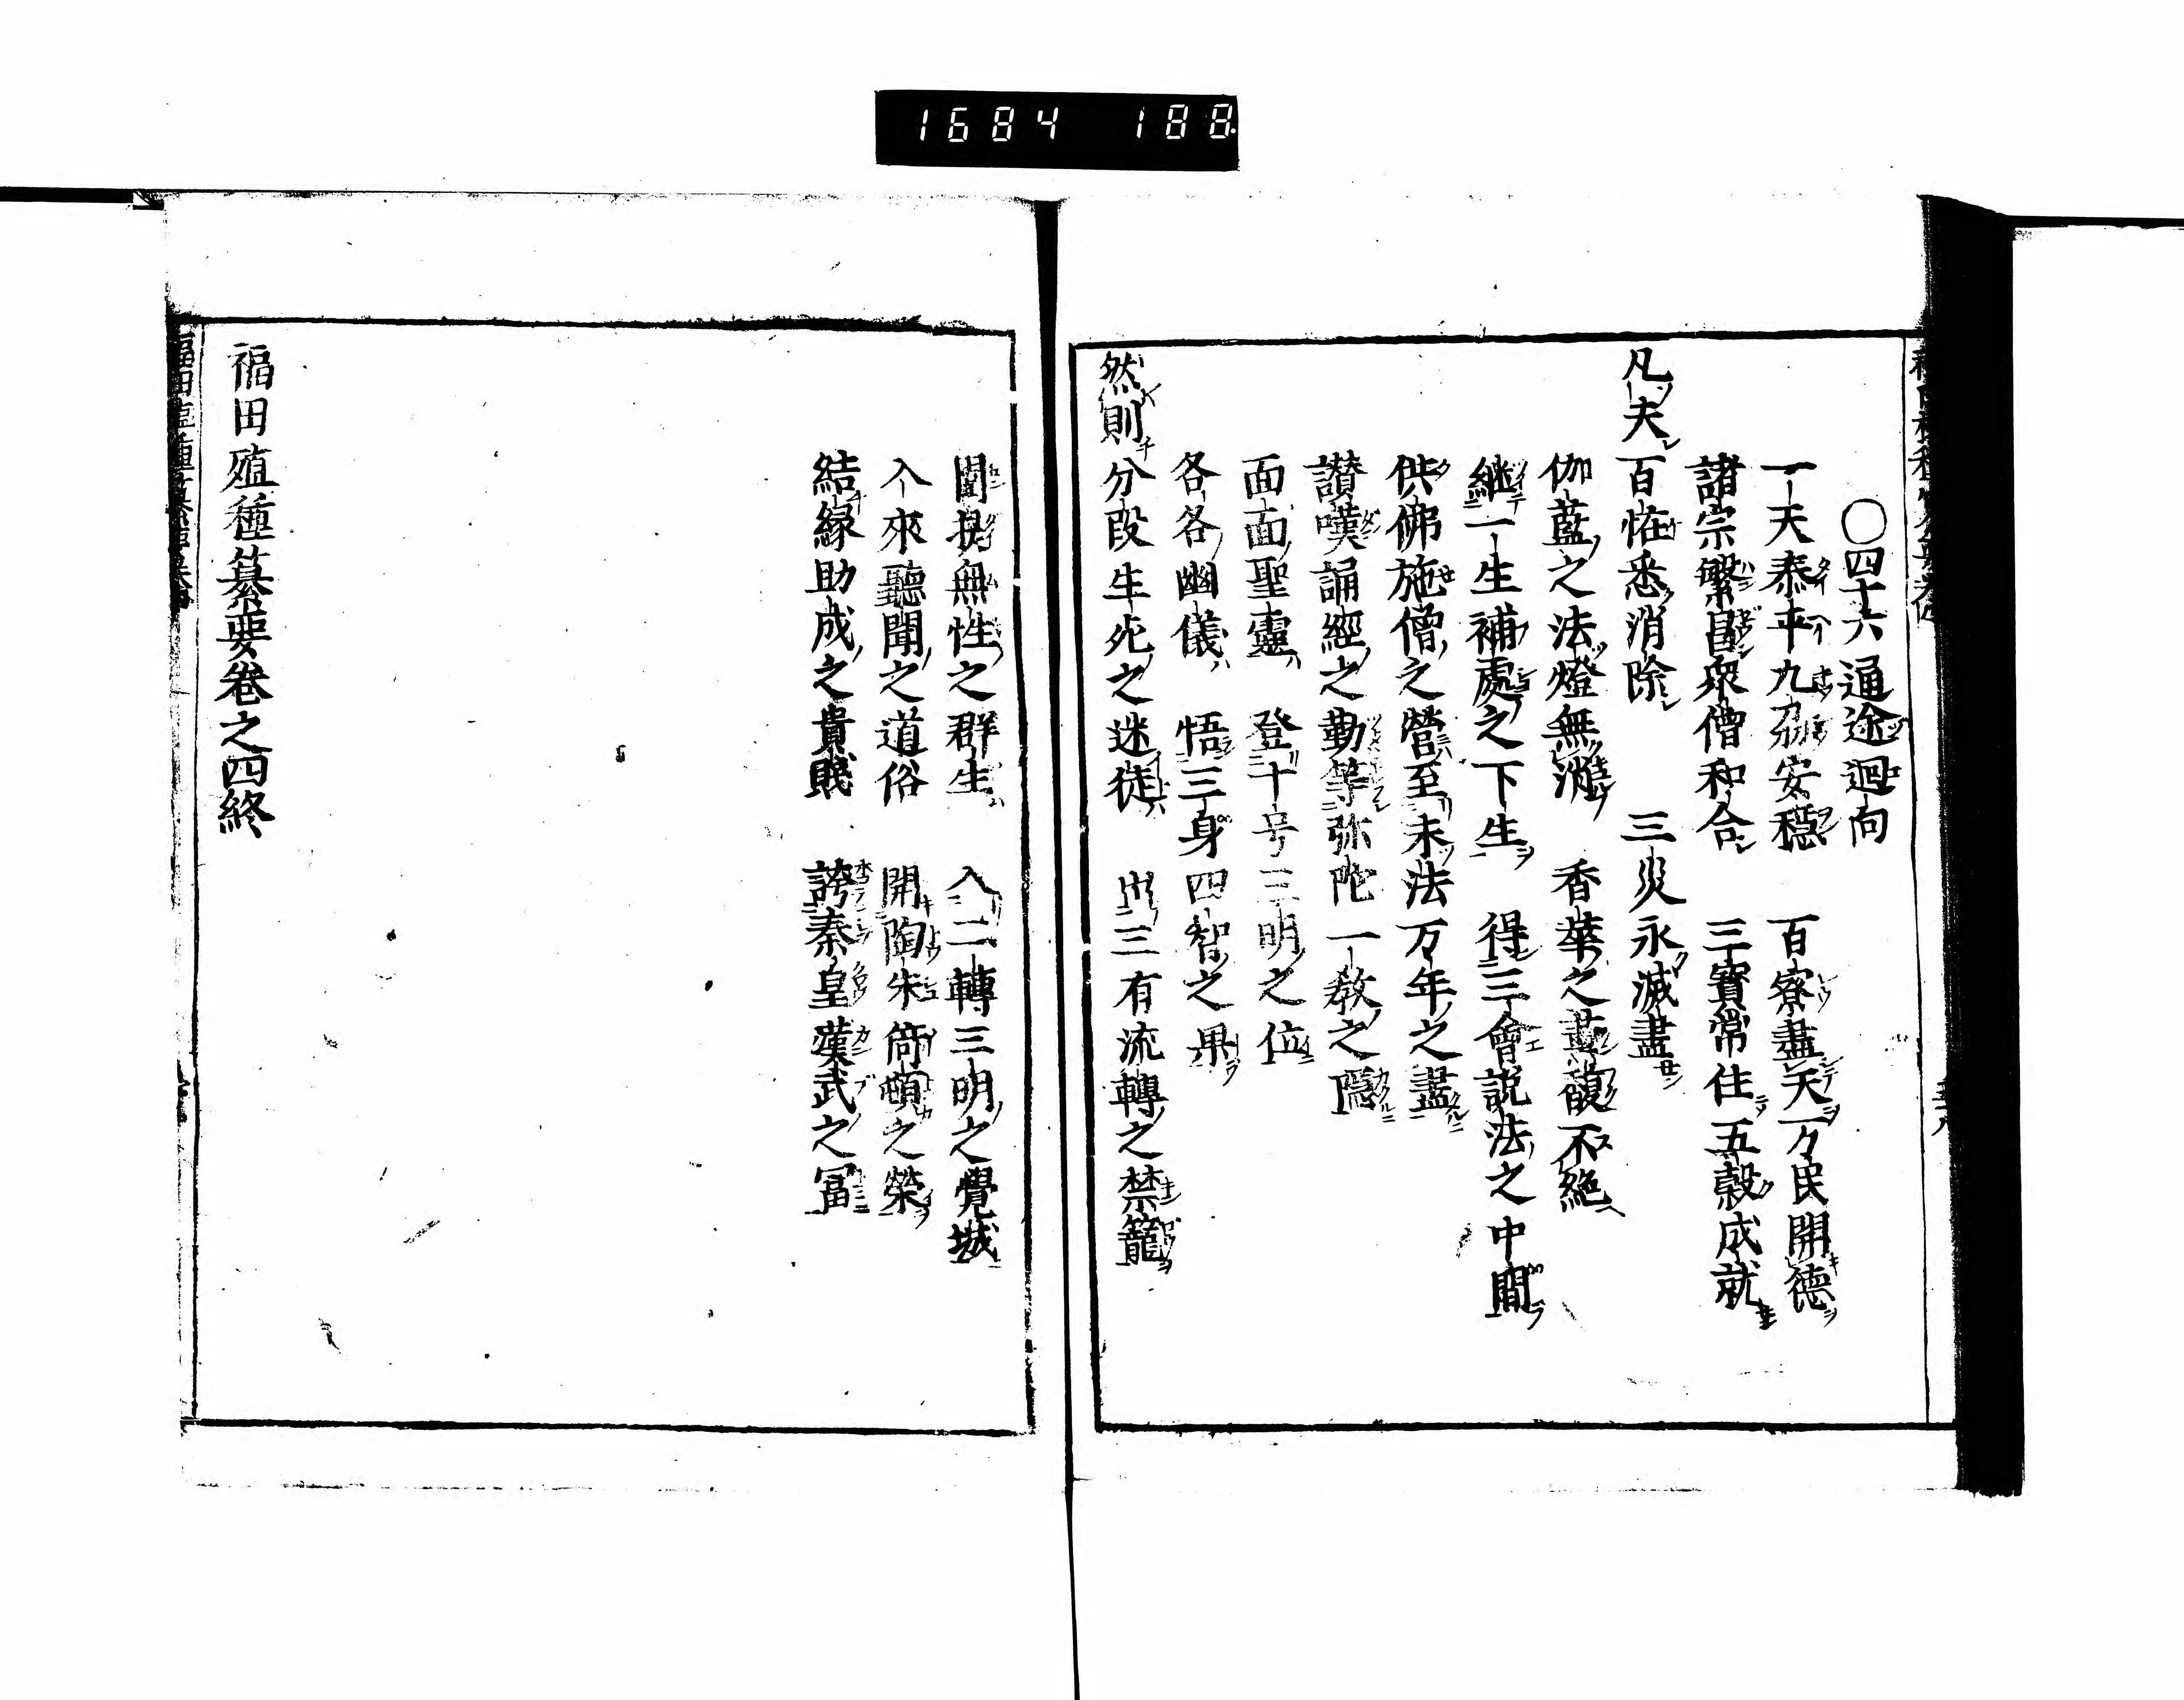 1684 188
〇四十六通途迴向
一天泰平九刕安穏 百寮盡天一万民開德
諸宗繁昌衆僧和合 三寶常住五穀成就
凡夫百恠悉消除 三災永滅盡
伽藍之法燈無消 香華之馥不絶
継一生補處之下生 得三會説法之中間
供佛施僧之營至末法万年之盡
讃嘆誦經之勤等弥陀一教之隱
面面聖靈 登十号三明之位
各各幽儀 悟三身四智之果
然則分段生死之迷徒 出三有流轉之禁籠
闡提無性之群生 入二轉三明之覺城
入來聽聞之道俗 開陶朱猗頓之榮
結縁助成之貴賤 誇秦皇漢武之冨
福田殖種纂要卷之四終